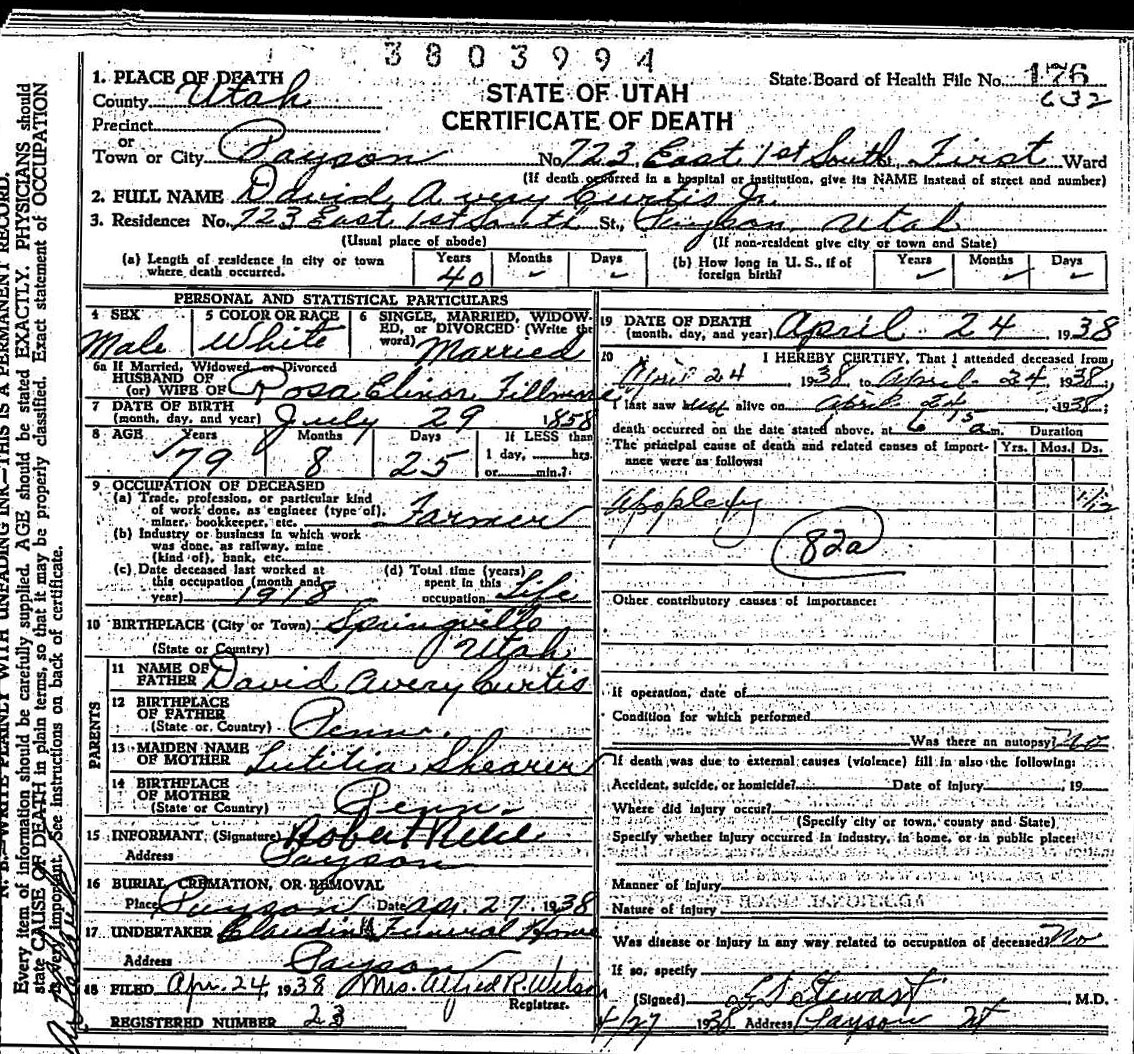 3803994
1. PLACE OF DEATH
State Board of Health File No. 176
County Utah
STATE OF UTAH
632
Precinct
CERTIFICATE OF DEATH
or
Town or City Payson No. 723 East 1st South St., First Ward
(If death occurred in a hospital or institution, give its NAME instead of street and number)
2. FULL NAME David Avery Curtis Jr.
3. Residence: No. 723 East 1st South St., Payson, Utah
(Usual place of abode) (If non-resident give city or town and State)
(a) Length of residence in city or town where death occurred. Years 40 Months - Days -
(b) How long in U. S., if of foreign birth? Years - Months - Days -
PERSONAL AND STATISTICAL PARTICULARS
4 SEX Male
5 COLOR OR RACE White
6 SINGLE, MARRIED, WIDOWED, or DIVORCED (Write the word) Married
6a If Married, Widowed, or Divorced
HUSBAND OF
(or) WIFE OF Rosa Elinor Fillmore
7 DATE OF BIRTH
(month, day, and year) July 29 1858
8 AGE Years 79 Months 8 Days 25
If LESS than
1 day, hrs.
or min.?
9 OCCUPATION OF DECEASED
(a) Trade, profession, or particular kind
of work done, as engineer (type of),
miner, bookkeeper, etc. Farmer
(b) Industry or business in which work
was done, as railway, mine
(kind of), bank, etc.
(c) Date deceased last worked at
this occupation (month and
year) 1918
(d) Total time (years)
spent in this
occupation Life
10 BIRTHPLACE (City or Town) Springville
(State or Country) Utah
PARENTS
11 NAME OF
FATHER David Avery Curtis
12 BIRTHPLACE
OF FATHER
(State or Country) Penn.
13 MAIDEN NAME
OF MOTHER Lutitia Shearer
14 BIRTHPLACE
OF MOTHER
(State or Country) Penn.
15 INFORMANT (Signature) Robert
Address Payson
16 BURIAL, CREMATION, OR REMOVAL
Place Payson Date Apr. 27 1938
17 UNDERTAKER Claudin Funeral Home
Address Payson
18 FILED Apr. 24, 1938 Mrs. Alfred R. Wilson
Registrar.
REGISTERED NUMBER 23
19 DATE OF DEATH
(month, day, and year) April 24 1938
20 I HEREBY CERTIFY, That I attended deceased from
April 24 1938, to April 24, 1938;
I last saw alive on April 24, 1938;
death occurred on the date stated above, at 6 15 a m. Duration
The principal cause of death and related causes of importance were as follows: Yrs. Mos. Ds.
Apoplexy 1/12
82a
Other contributory causes of importance:
If operation, date of
Condition for which performed
Was there an autopsy? No
If death was due to external causes (violence) fill in also the following:
Accident, suicide, or homicide? Date of Injury , 19
Where did injury occur?
(Specify city or town, county and State)
Specify whether injury occurred in industry, in home, or in public place:
Manner of Injury
Nature of injury
Was disease or injury in any way related to occupation of deceased? No
If so, specify
(Signed) Stewart M.D.
4/27 1938 Address Payson Ut
N. B.—WRITE PLAINLY WITH UNFADING INK—THIS IS A PERMANENT RECORD.
Every item of information should be carefully supplied. AGE should be stated EXACTLY. PHYSICIANS should
state CAUSE OF DEATH in plain terms, so that it may be properly classified. Exact statement of OCCUPATION
is very important. See instructions on back of certificate.